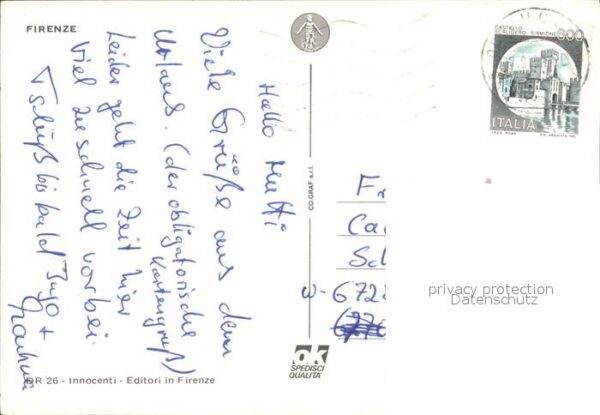 FIRENZE
Hallo Mutti
Viele Grüße aus dem
Urlaub. (der obligatorische
Kartengruß)
Leider geht die Zeit hier
viel zu schnell vorbei.
Tschüß bis bald Ingo +
CO.GRAF s.r.l.
ok
SPEDISCI
QUALITA'
DR 26 - Innocenti - Editori in Firenze
CASTELLO
SCALIGERO SIRMIONE
800
ITALIA
Fr
Ca
Sc
D-672
privacy protection
Datenschutz